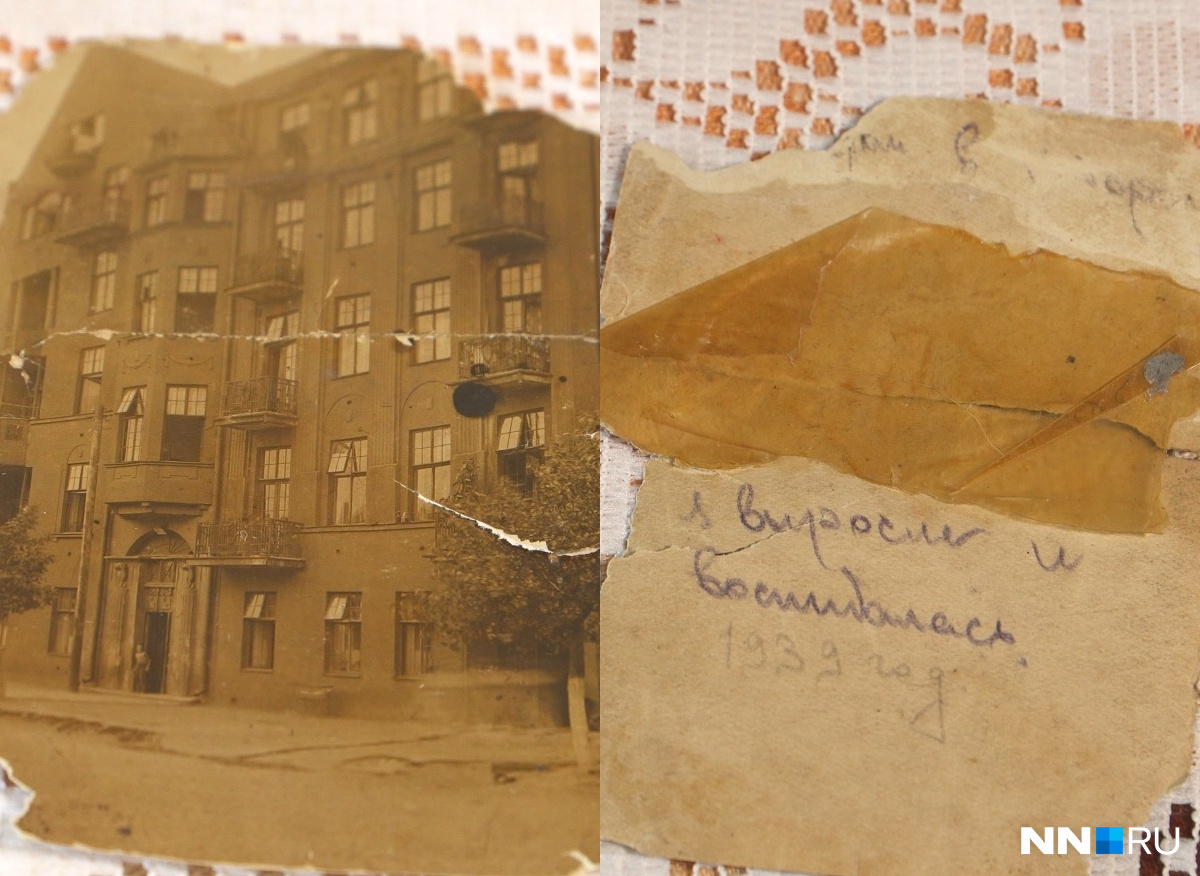 в
я выросла и
воспиталась.
1939 год.
NN.RU